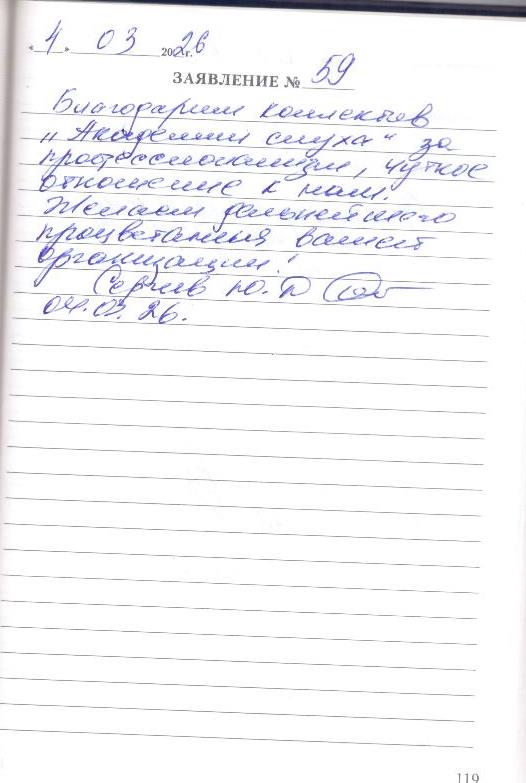 «4» 03 2026 г.
ЗАЯВЛЕНИЕ № 59
Благодарим коллектив
„Академии слуха“ за
профессионализм, чуткое
отношение к нам.
Желаем дальнейшего
процветания вашей
организации!
Ю. П
04.03. 26.
119